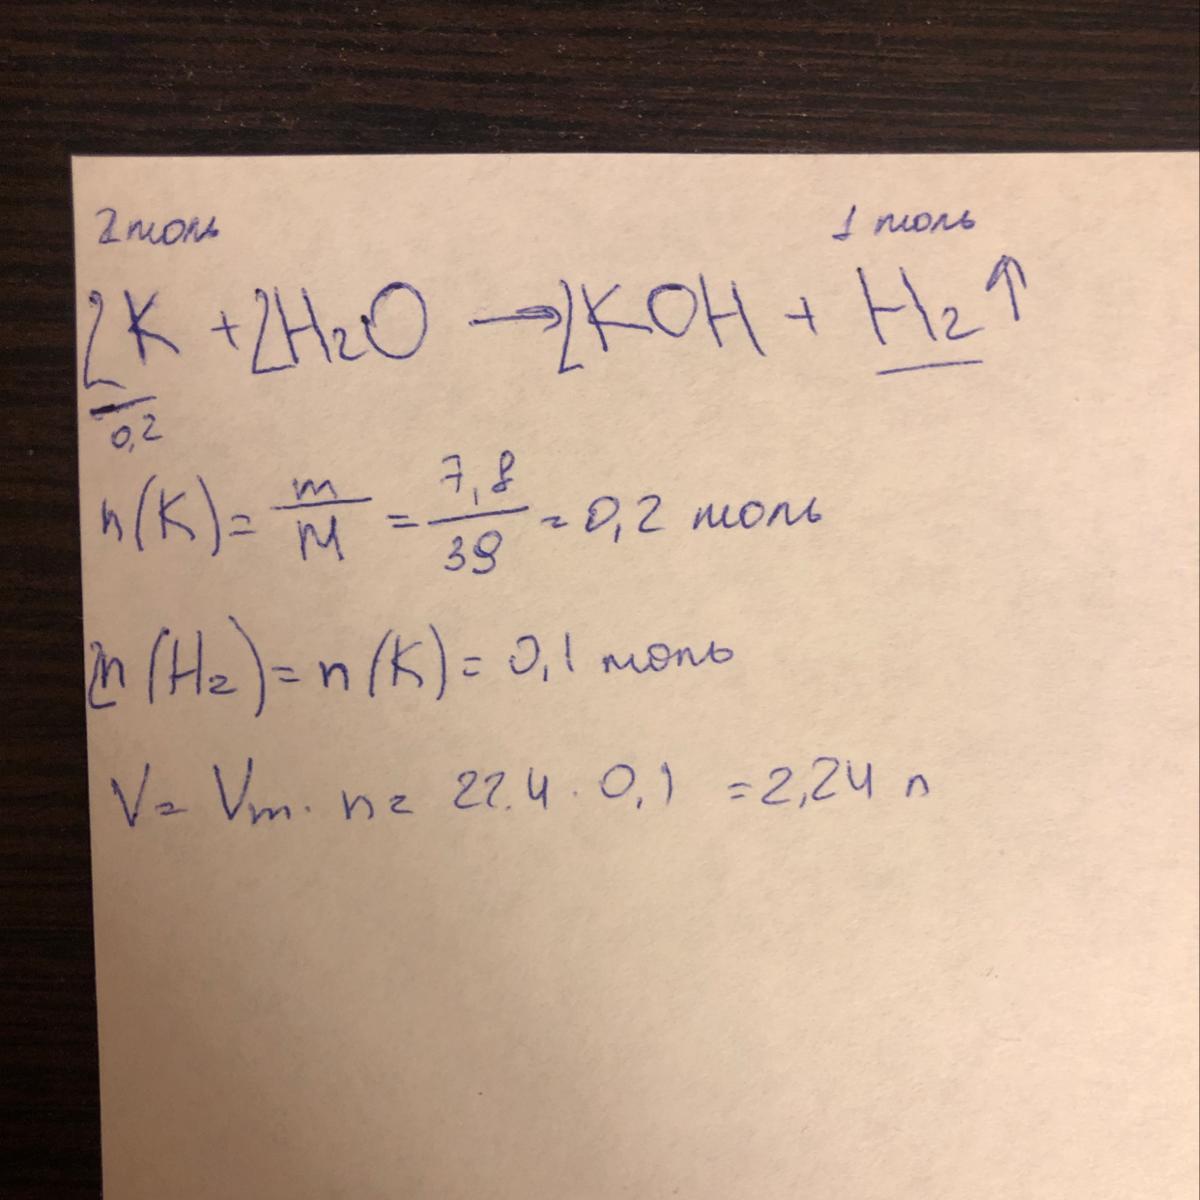 2 моль 1 моль
2K + 2H₂O → 2KOH + H₂↑
0,2
n(K) = m/M = 7,8/39 = 0,2 моль
2n(H₂) = n(K) = 0,1 моль
V = Vm · n = 22.4 · 0,1 = 2,24 л